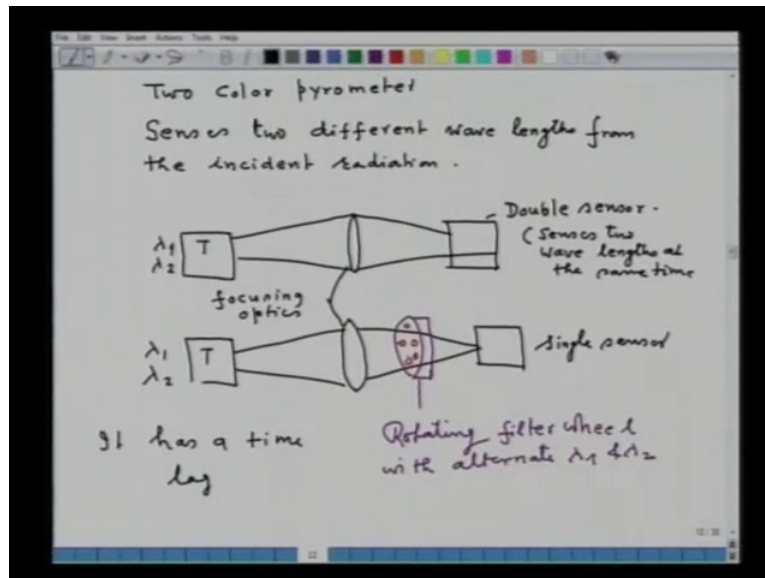 File Edit View Insert Actions Tools Help
Two Color pyrometer
Senses two different wave lengths from
the incident radiation.
Double sensor.
(Senses two
wave lengths at
the same time
λ1
λ2
T
focusing
optics
λ1
λ2
T
single sensor
It has a time
lag
Rotating filter wheel
with alternate λ1 & λ2
12